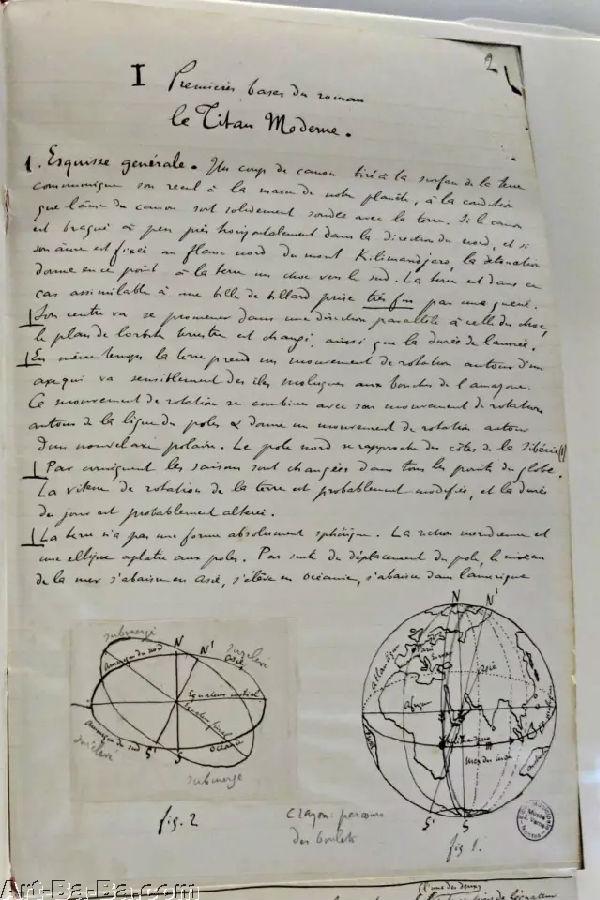 2
I Premières bases du roman
le Titan Moderne.
1. Esquisse générale. Un coup de canon tiré à la surface de la terre
communique son recul à la masse de notre planète, à la condition
que l'âme du canon soit solidement soudée avec la terre. Si le canon
est braqué à peu près horizontalement dans la direction du nord, et si
son âme est fixée au flanc nord du mont Kilimandjaro, la détonation
donne en ce point à la terre un choc vers le sud. La terre est dans ce
cas assimilable à une bille de billard prise très fin par une queue.
Son centre va se promener dans une direction parallèle à celle du choc,
le plan de l'orbite terrestre est changé, ainsi que la durée de l'année.
En même temps la terre prend un mouvement de rotation autour d'un
axe qui va sensiblement des îles moluques aux bouches de l'amazone.
Ce mouvement de rotation se combine avec son mouvement de rotation
autour de la ligne des poles & donne un mouvement de rotation autour
d'un nouvel axe polaire. Le pole nord se rapproche des côtes de la Sibérie (1)
Par conséquent les saisons sont changées dans tous les points du globe.
La vitesse de rotation de la terre est probablement modifiée, et la durée
du jour est probablement altérée.
La terre n'a pas une forme absolument sphérique. La section méridienne est
une ellipse aplatie aux poles. Par suite du déplacement du pole, le niveau
de la mer s'abaisse en Asie, s'élève en Océanie, s'abaisse dans l'amérique
submergé
N N'
surélevé
Asie
Amérique du nord
Equateur initial
Equateur final
Amérique du sud
Océanie
surélevé
S' S
submergé
fig. 2
N N'
Atlantique
Asie
Afrique
Mer des indes
S' S
crayon: parcours
des boulets
fig 1.
Art-Ba-Ba.com
l'une des deux